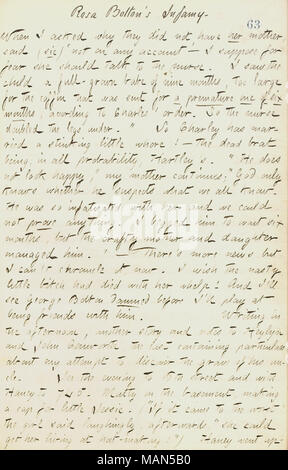 Rosa Bolton's Infamy.
63
When I asked why they did not have her mother
said (sic) "not on any account — I suppose for
fear she should talk to the nurse. I saw the
child a full-grown babe of nine months, too large
for the coffin that was sent for a premature one of six
months, according to Charles' order. So the nurse
doubled the legs under." So Charley has mar-
ried a stinking little whore! — the dead brat
being, in all probability, Hartley's. "He does
not look happy," my mother continues; "God only
knows whether he suspects what we all know.
He was so infatuated with her and we could
not prove anything. We begged him to wait six
months, but the crafty mother and daughter
managed him." — There's more news but
I can't chronicle it now. I wish the nasty
little bitch had died with her whelp! And I'll
see George Bolton damned before I'll play at
being friends with him. Writing in
the afternoon, another story and note to Heylyn
and John Conworth the last containing particulars
about my attempt to discover the grave of his un-
cle. In the evening to 16th street and with
Haney to 745. Matty in the basement making
a cap for little Jessie. (If it came to the worst
the girl said laughingly, afterwards "she could
get her living at hat-making!") Haney went up-
alamy
Image ID: MAN5B0
www.alamy.com